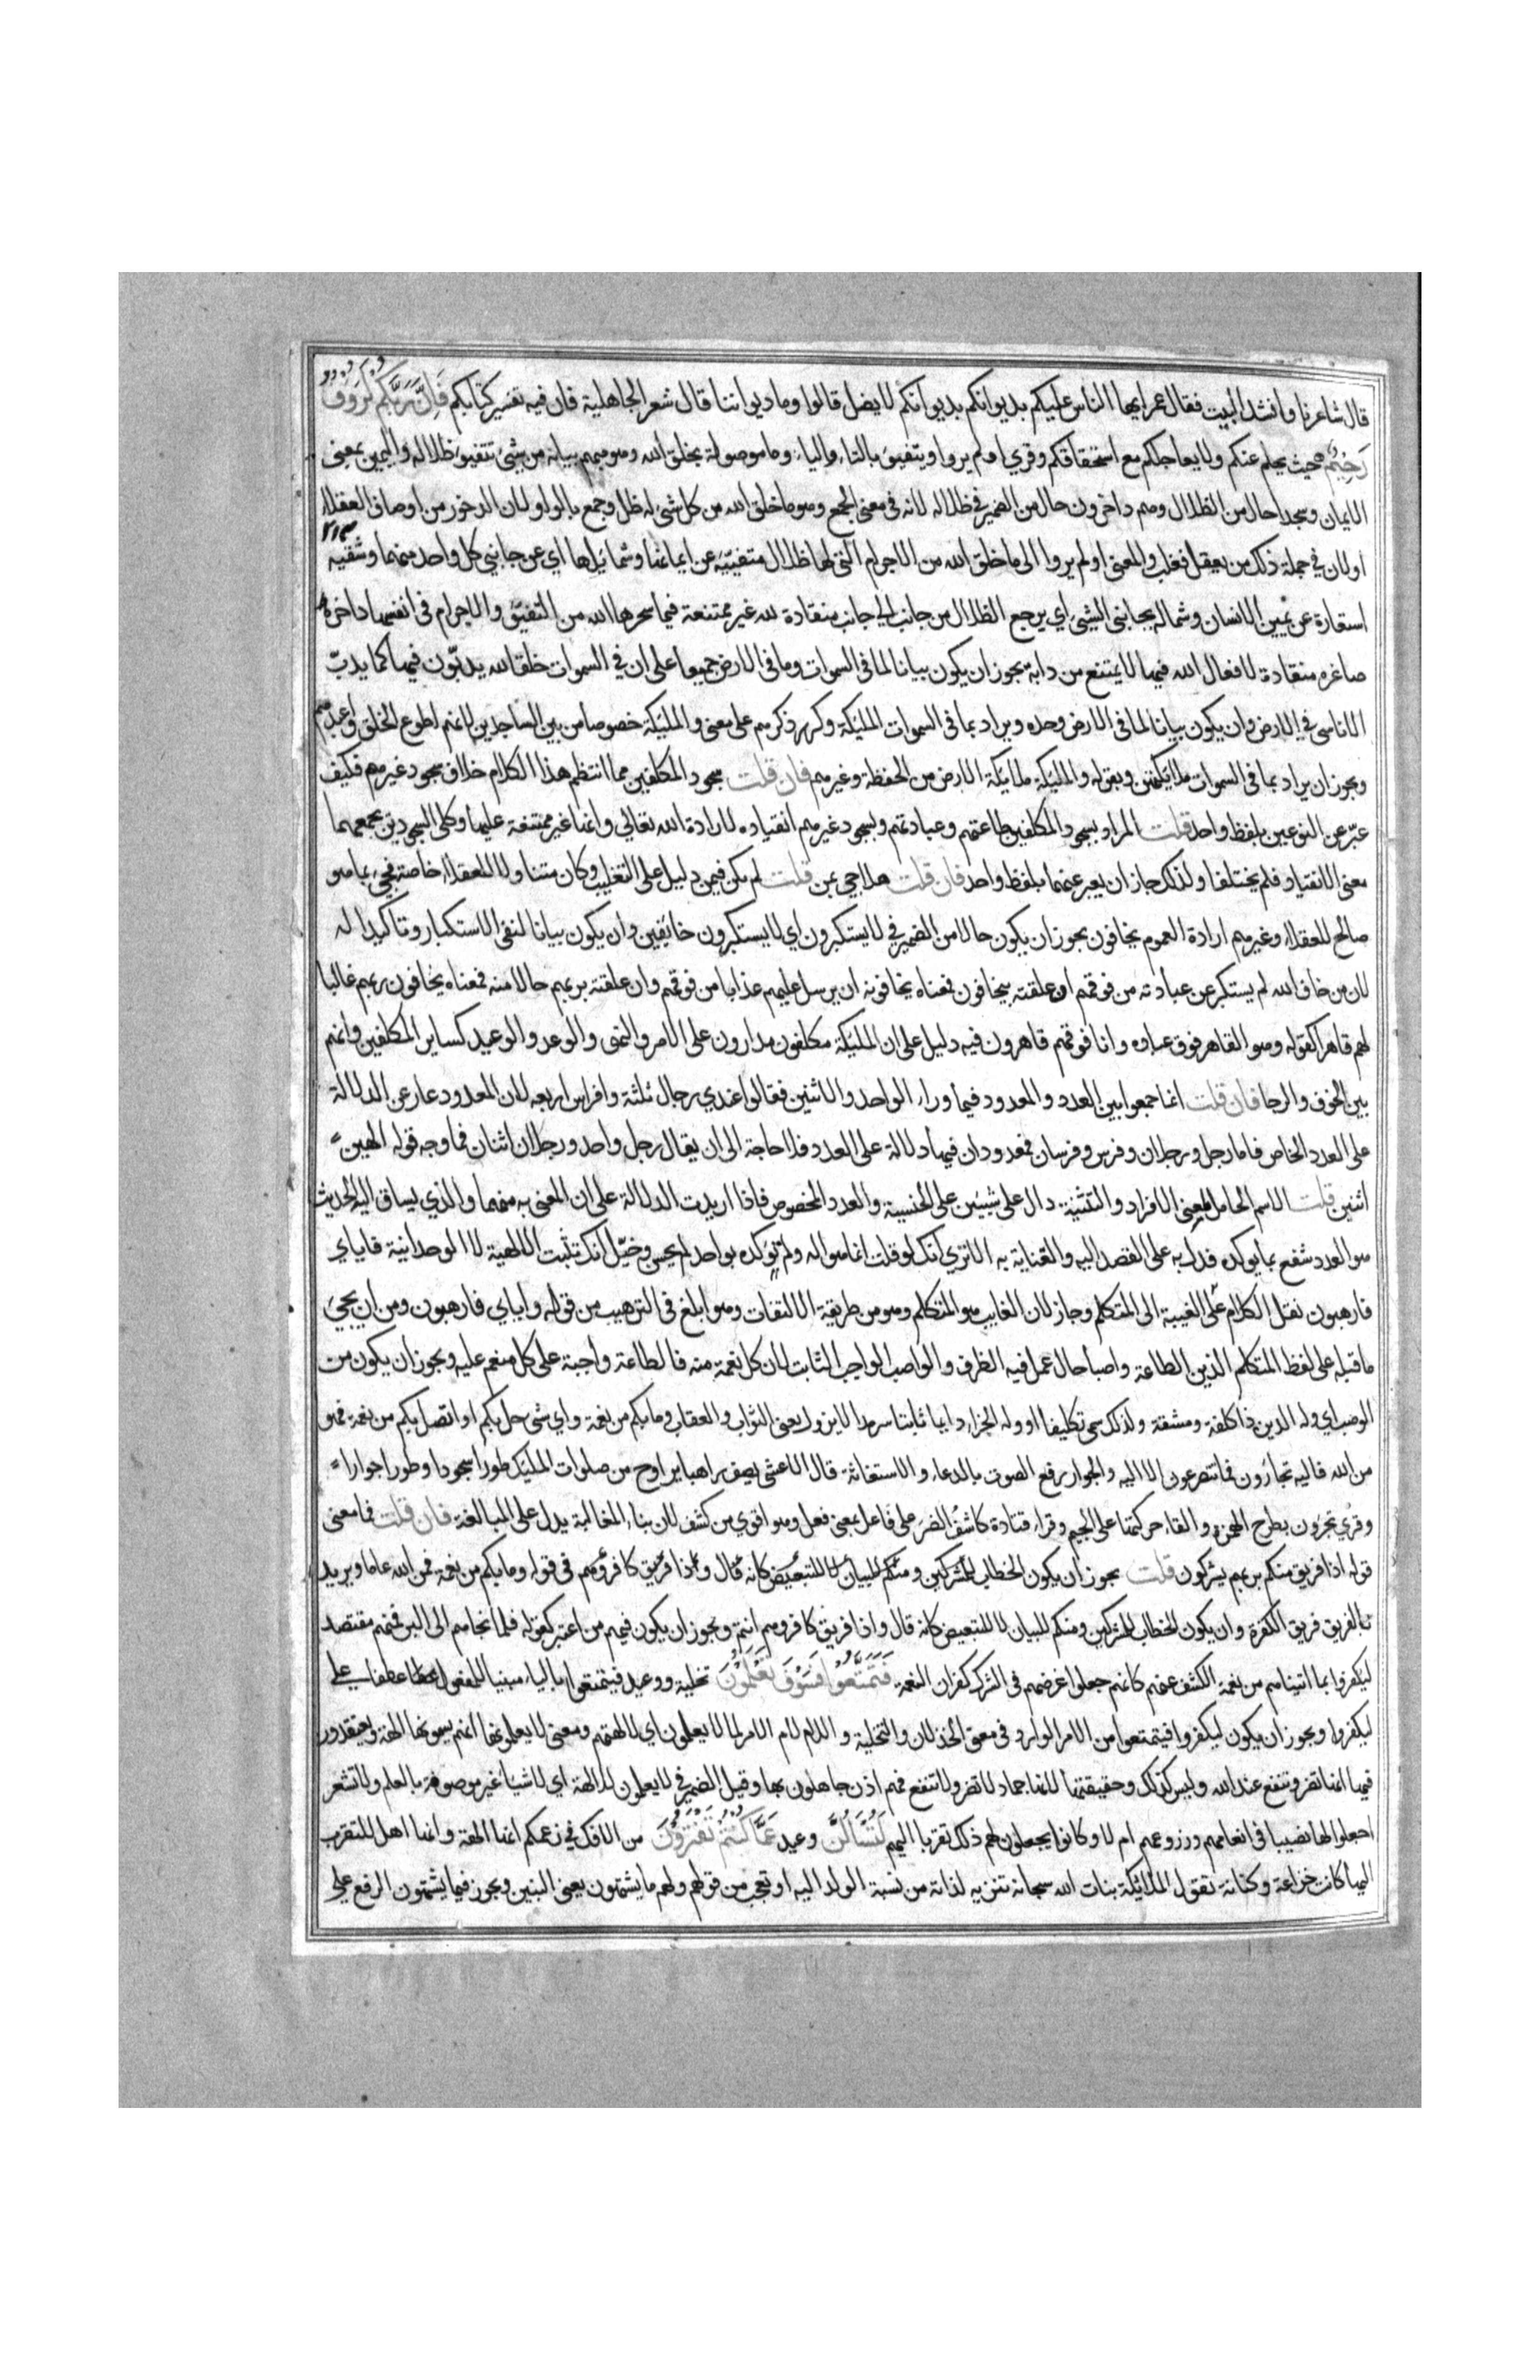 قال شاعرنا وانشد البيت فقال عمر ايها الناس عليكم بديوانكم بديوانكم لا يضل قالوا وما ديواننا قال شعر الجاهلية فان فيه تفسير كتابكم فَاِنَّ رَبَّكُمْ لَرَؤُفٌ
رَحِيْمٌ حيث يحلم عنكم ولا يعاجلكم مع استحقاقكم وقري اولم يروا ويتفيؤ بالتاء والياء وما موصولة بخلق الله وهو مبهم بيانه من شئ تتفيؤ ظلاله واليمين بمعنى
الايمان وسجدا حال من الظلال وهم داخرون حال من الضمير في ظلاله لانه في معنى الجمع وهو ما خلق الله من كل شئ له ظل وجمع بالواو لان الدخور من اوصاف العقلاء
اولان في جملة ذلك من يعقل فغلب والمعنى اولم يروا الى ما خلق الله من الاجرام التي لها ظلال متفيئة عن ايمانها وشمائلها اي عن جانبي كل واحد منهما وشقيه
استعارة عن يمين الانسان وشماله بجانبى الشيئ اي يرجع الظلال من جانب الى جانب منقادة لله غير ممتنعة فيما سخرها الله من التفيئ والاجرام في انفسها داخرة
صاغره منقادة لافعال الله فيها لا يمتنع من دابة يجوز ان يكون بيانا لما في السموات وما في الارض جميعا على ان في السموات خلقا لله يدبّون فيها كما يدبّ
الاناسى في الارض وان يكون بيانا لما في الارض وحده ويراد بما في السموات المليكة وكرر ذكرهم على معنى والمليكة خصوصا من بين الساجدين لانهم اطوع الخلق واعبدهم
ويجوز ان يراد بما في السموات ملائكتهن وبقوله والمليكة ملائكة الارض من الحفظة وغيرهم فان قلت سجود المكلفين مما انتظم هذا الكلام خلاف سجود غيرهم فكيف
عبّر عن النوعين بلفظ واحد قلت المراد بسجود المكلفين طاعتهم وعبادتهم وبسجود غيرهم انقياده لارادة الله تعالى وانها غير ممتنعة عليها وكلى السجودين يجمعهما
معنى الانقياد فلم يختلفا ولذلك جاز ان يعبر عنهما بلفظ واحد فان قلت هلا جي بمن قلت لم يكن فيهن دليل على التغليب وكان متناولا للعقلاء خاصة فجئ بما هو
صالح للعقلاء وغيرهم ارادة العموم يخافون يجوز ان يكون حالا من الضمير في لا يستكبرون اي لا يستكبرون خائفين وان يكون بيانا لنفى الاستكبار وتاكيدا له
لان من خاف الله لم يستكبر عن عبادته من فوقهم ان علقته بيخافون فمعناه يخافونه ان يرسل عليهم عذابا من فوقهم وان علقته بربهم حالا منه فمعناه يخافون ربهم غالبا
لهم قاهرا كقوله وهو القاهر فوق عباده وانا فوقهم قاهرون فيه دليل على ان المليكة مكلفون مدارون على الامر والنهى والوعد والوعيد كساير المكلفين وانهم
بين الخوف والرجا فان قلت انما جمعوا بين العدد والمعدود فيما وراء الواحد والاثنين فقالوا عندي رجال ثلثة وافراس اربعه لان المعدود عار عن الدلالة
على العدد الخاص فاما رجل ورجلان وفرس وفرسان فمعدودان فيهما دلالة على العدد فلا حاجة الى ان يقال رجل واحد ورجلان اثنان فما وجه قوله الهين
اثنين قلت الاسم الحامل لمعنى الافراد والتثنية دال على شيئين على الجنسية والعدد المخصوص فاذا اريدت الدلالة على ان المعنى به منهما والذي يساق اليه الحديث
هو العدد شفع بما يوكده فدل به على القصد اليه والعناية به الا ترى انك لو قلت انما هو اله ولم تؤكده بواحد لم يحسن وخيّل انك تثبت الالهية لا الوحدانية فاياي
فارهبون نقل الكلام عن الغيبة الى المتكلم وجاز لان الغايب هو المتكلم وهو من طريقة الالتفات وهو ابلغ في الترهيب من قوله واياي فارهبون ومن ان يجئ
ما قبله على لفظ المتكلم الذين الطاعة واصبا حال عمل فيه الظرف والواصب الواجب الثابت لان كل نعمة منه فالطاعة واجبة على كل منعم عليه ويجوز ان يكون من
الوصب اي وله الدين ذا كلفة ومشقة ولذلك سمى تكليفا او وله الجزاء دايبا ثابتا سرمدا لا يزول يعنى الثواب والعقاب وما بكم من نعمة واي شئ حل بكم او اتصل بكم من نعمة فهو
من الله فاليه تجأرون فما تتضرعون الا اليه والجوار رفع الصوت بالدعاء والاستغاثة قال الاعشى يصف راهبا يراوح من صلوات المليك طورا سجودا وطورا جوارا
وقري تجرون بطرح الهمزة والقاء حركتها على الجيم وقراء قتادة كاشف الضر على فاعل بمعنى فعل وهو اقوى من كشف لان بناء المغالبة يدل على المبالغة فان قلت فما معنى
قوله اذا فريق منكم بربهم يشركون قلت يجوز ان يكون الخطاب للمشركين ومنكم للبيان لا للتبعيض كانه قال واذا فريق كافرؤهم في قوله وما بكم من نعمة فمن الله عاما ويريد
بالفريق فريق الكفرة وان يكون الخطاب للمشركين ومنكم للبيان لا للتبعيض كانه قال واذا فريق كافر وهم انتم ويجوز ان يكون فيهم من اعتبر كقوله فلما نجاهم الى البر فمنهم مقتصد
ليكفروا بما اتيناهم من نعمة الكشف عنهم كانهم جعلوا غرضهم في الشرك كفران النعمة فَتَمَتَّعُوا فَسَوْفَ تَعْلَمُوْنَ تخلية ووعيد فيتمتعوا بالياء مبنيا للمفعول عطفا على
ليكفروا ويجوز ان يكون ليكفروا فيتمتعوا من الامر الوارد في معنى الخذلان والتخلية واللام لام الامر لما لا يعلمون اي لالهتهم ومعنى لا يعلمونها انهم يسمونها الهة ويعتقدون
فيها انها تضر وتنفع عند الله وليس كذلك وحقيقتها انها جماد لا تضر ولا تنفع فهم اذن جاهلون بها وقيل الضمير في لا يعلمون للالهة اي لاشيا غير موصوفة بالعلم ولا تشعر
اجعلوا لها نصيبا في انعامهم وزروعهم ام لا وكانوا يجعلون لهم ذلك تقربا اليهم لَتُسْأَلُنَّ وعيد عَمَّا كُنْتُمْ تَفْتَرُوْنَ من الافك في زعمكم انها الهة وانها اهل للتقرب
اليها كانت خزاعة وكنانة تقول الملائكة بنات الله سبحانه تنزيه لذاته من نسبة الولد اليه او تعجب من قولهم ولهم ما يشتهون يعنى البنين ويجوز فيما يشتهون الرفع على